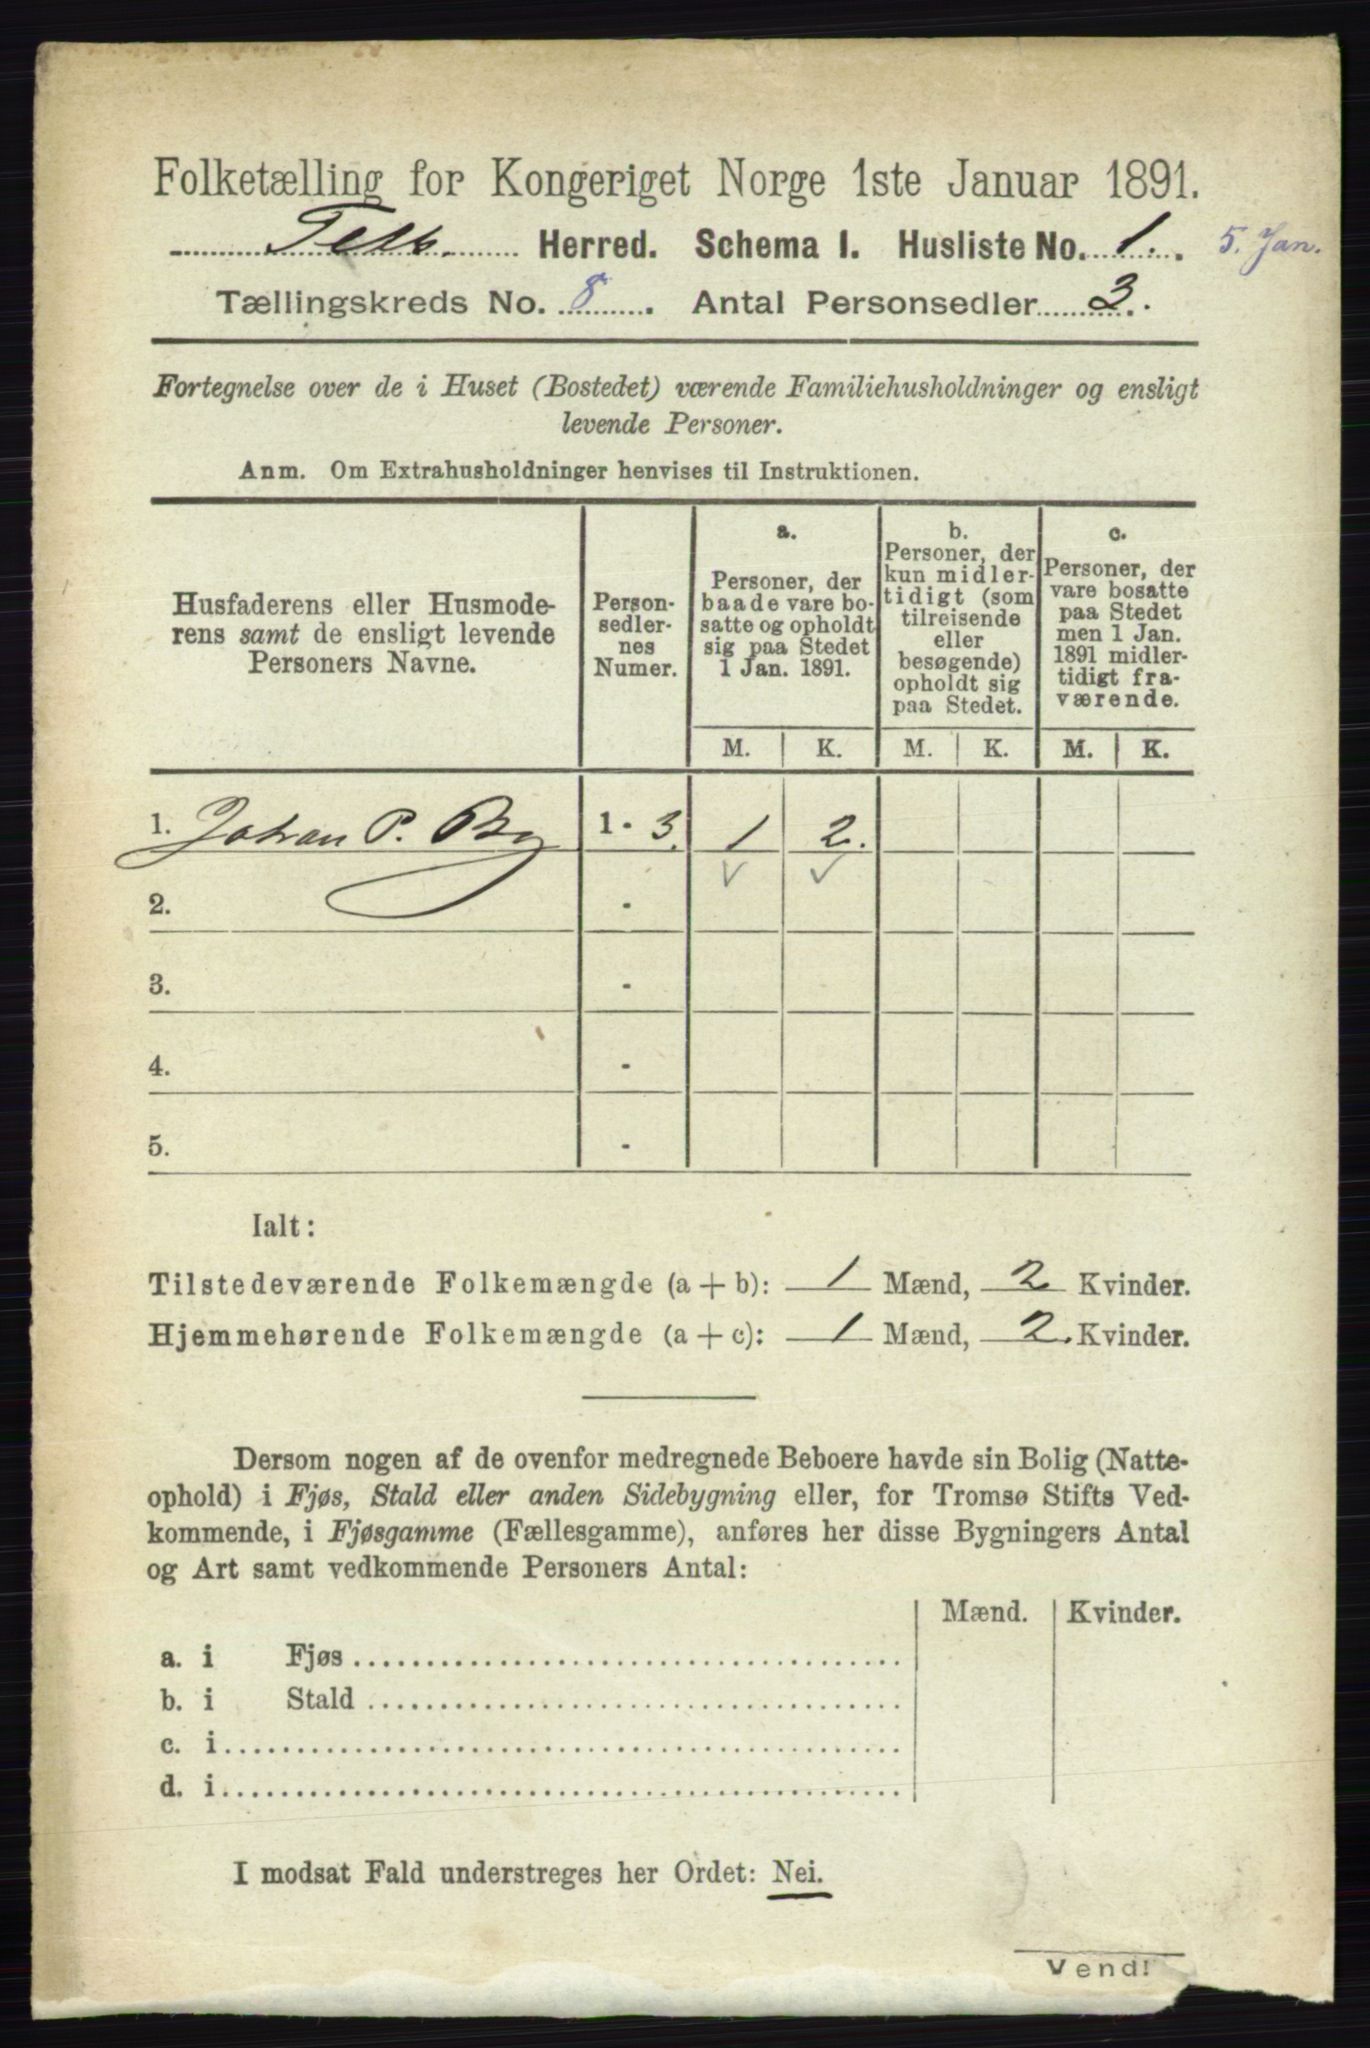 Folketælling for Kongeriget Norge 1ste Januar 1891.
Herred. Schema I. Husliste No. 1. 5. Jan.
Tællingskreds No. 8. Antal Personsedler 3.
Fortegnelse over de i Huset (Bostedet) værende Familiehusholdninger og ensligt
levende Personer.
Anm. Om Extrahusholdninger henvises til Instruktionen.
Husfaderens eller Husmode-
rens samt de ensligt levende
Personers Navne.
Person-
sedler-
nes
Numer.
a.
Personer, der
baade vare bo-
satte og opholdt
sig paa Stedet
1 Jan. 1891.
b.
Personer, der
kun midler-
tidigt (som
tilreisende
eller
besøgende)
opholdt sig
paa Stedet.
c.
Personer, der
vare bosatte
paa Stedet
men 1 Jan.
1891 midler-
tidigt fra-
værende.
M. K. M. K. M. K.
1. Johan P. By 1 - 3. 1 2.
2. -
3. -
4. -
5. -
Ialt:
Tilstedeværende Folkemængde (a + b): 1 Mænd, 2 Kvinder.
Hjemmehørende Folkemængde (a + c): 1 Mænd, 2. Kvinder.
Dersom nogen af de ovenfor medregnede Beboere havde sin Bolig (Natte-
ophold) i Fjøs, Stald eller anden Sidebygning eller, for Tromsø Stifts Ved-
kommende, i Fjøsgamme (Fællesgamme), anføres her disse Bygningers Antal
og Art samt vedkommende Personers Antal:
Mænd. Kvinder.
a. i Fjøs
b. i Stald
c. i
d. i
I modsat Fald understreges her Ordet: Nei.
Vend!